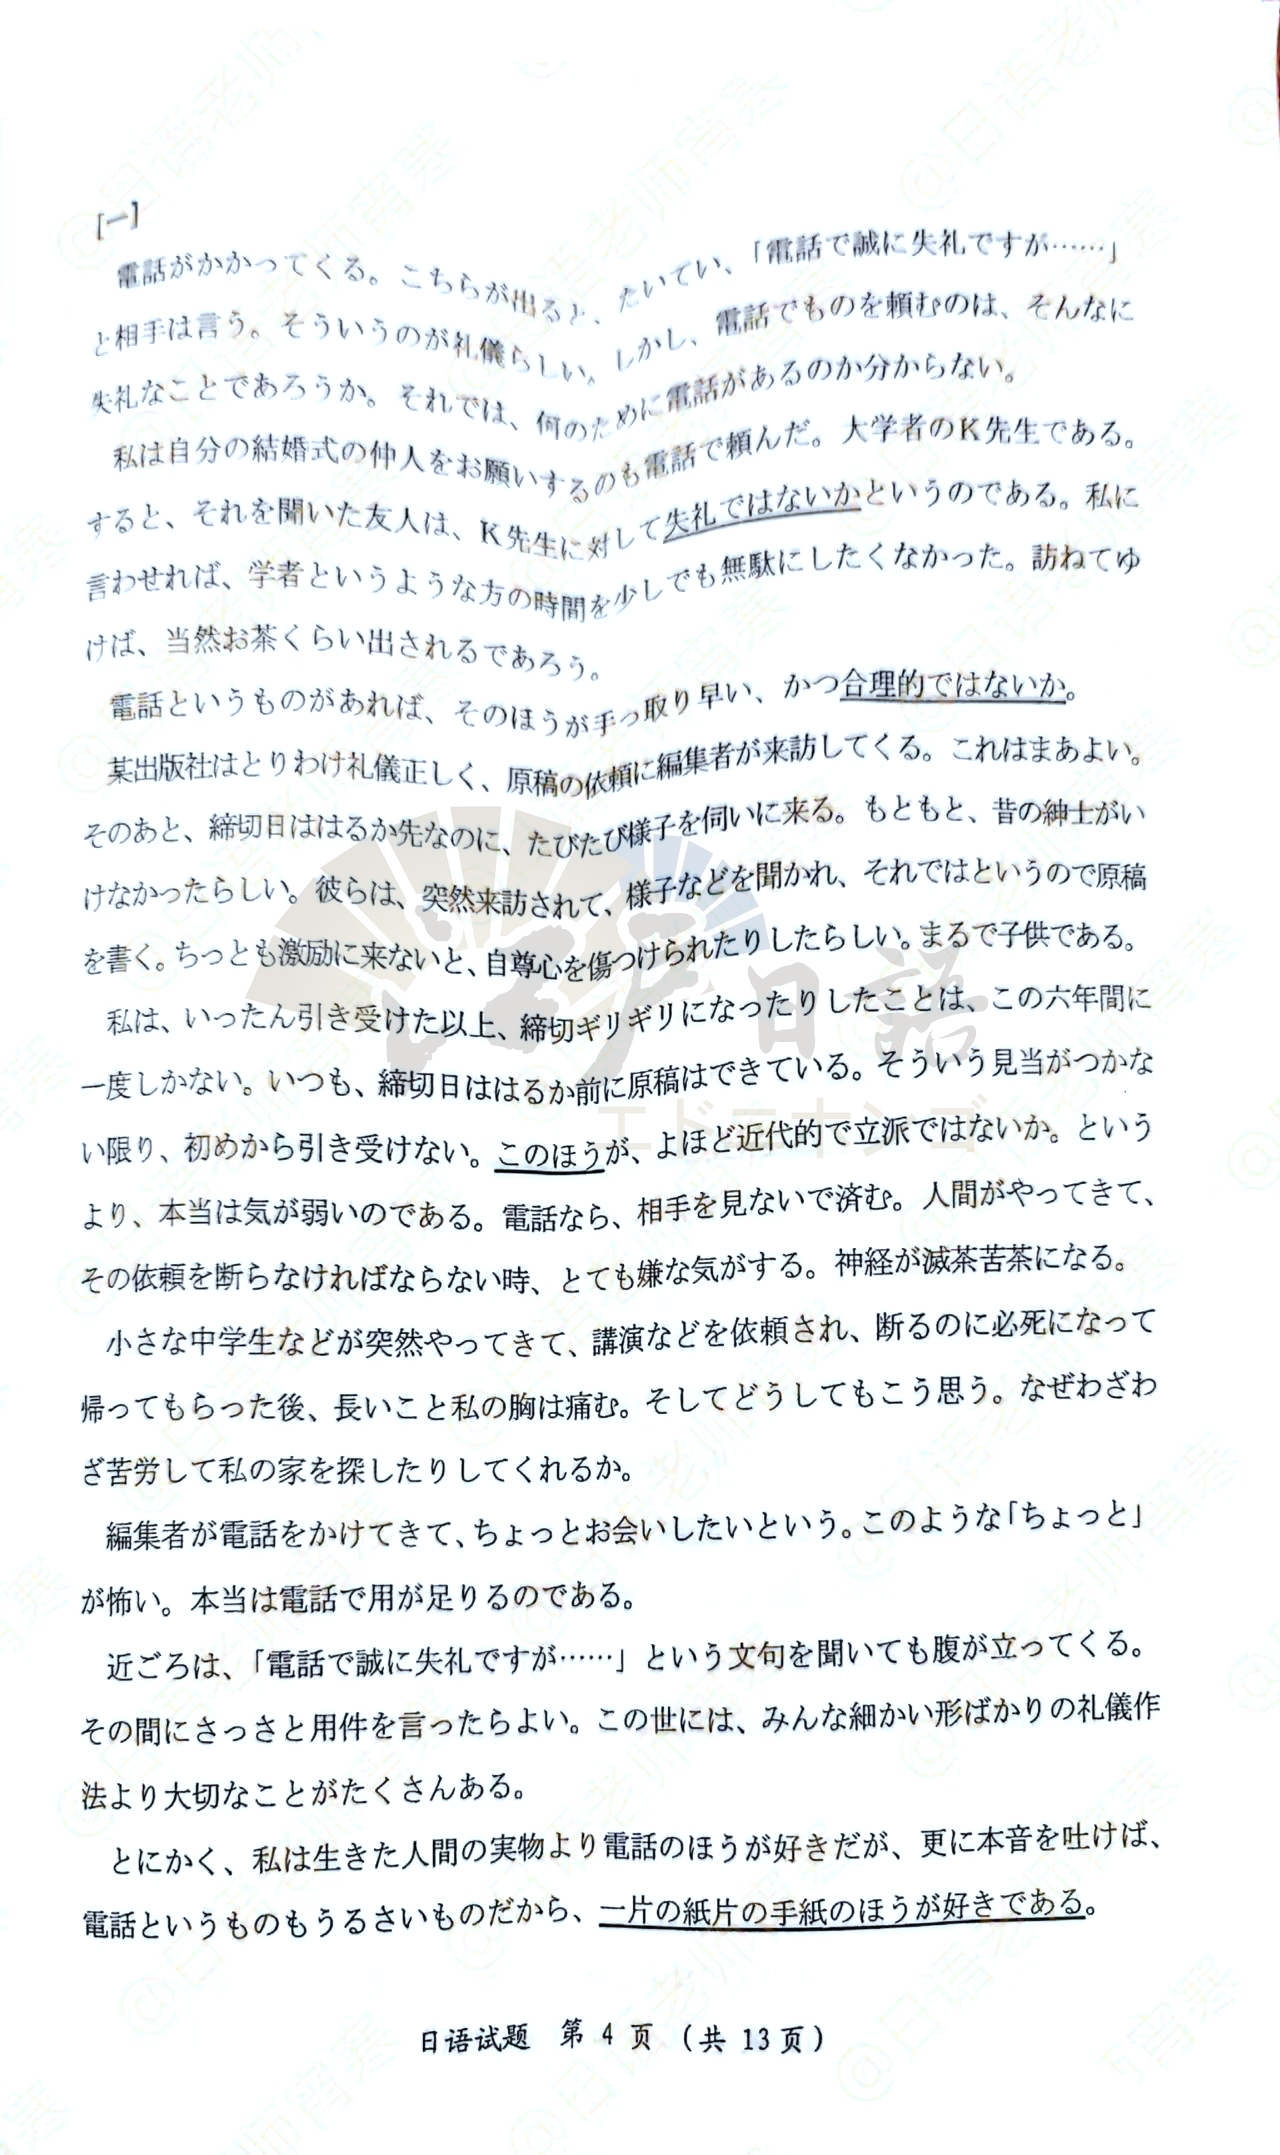 [一]
電話がかかってくる。こちらが出ると、たいてい、「電話で誠に失礼ですが……」
と相手は言う。そういうのが礼儀らしい。しかし、電話でものを頼むのは、そんなに
失礼なことであろうか。それでは、何のために電話があるのか分からない。
私は自分の結婚式の仲人をお願いするのも電話で頼んだ。大学者のK先生である。
すると、それを聞いた友人は、K先生に対して失礼ではないかというのである。私に
言わせれば、学者というような方の時間を少しでも無駄にしたくなかった。訪ねてゆ
けば、当然お茶くらい出されるであろう。
電話というものがあれば、そのほうが手っ取り早い、かつ合理的ではないか。
某出版社はとりわけ礼儀正しく、原稿の依頼に編集者が来訪してくる。これはまあよい。
そのあと、締切日ははるか先なのに、たびたび様子を伺いに来る。もともと、昔の紳士がい
けなかったらしい。彼らは、突然来訪されて、様子などを聞かれ、それではというので原稿
を書く。ちっとも激励に来ないと、自尊心を傷つけられたりしたらしい。まるで子供である。
私は、いったん引き受けた以上、締切ギリギリになったりしたことは、この六年間に
一度しかない。いつも、締切日ははるか前に原稿はできている。そういう見当がつかな
い限り、初めから引き受けない。このほうが、よほど近代的で立派ではないか。という
より、本当は気が弱いのである。電話なら、相手を見ないで済む。人間がやってきて、
その依頼を断らなければならない時、とても嫌な気がする。神経が滅茶苦茶になる。
小さな中学生などが突然やってきて、講演などを依頼され、断るのに必死になって
帰ってもらった後、長いこと私の胸は痛む。そしてどうしてもこう思う。なぜわざわ
ざ苦労して私の家を探したりしてくれるか。
編集者が電話をかけてきて、ちょっとお会いしたいという。このような「ちょっと」
が怖い。本当は電話で用が足りるのである。
近ごろは、「電話で誠に失礼ですが……」という文句を聞いても腹が立ってくる。
その間にさっさと用件を言ったらよい。この世には、みんな細かい形ばかりの礼儀作
法より大切なことがたくさんある。
とにかく、私は生きた人間の実物より電話のほうが好きだが、更に本音を吐けば、
電話というものもうるさいものだから、一片の紙片の手紙のほうが好きである。
日语试题 第 4 页 (共 13 页)
江戸日語
エドニホンゴ
@日语老师宵寒